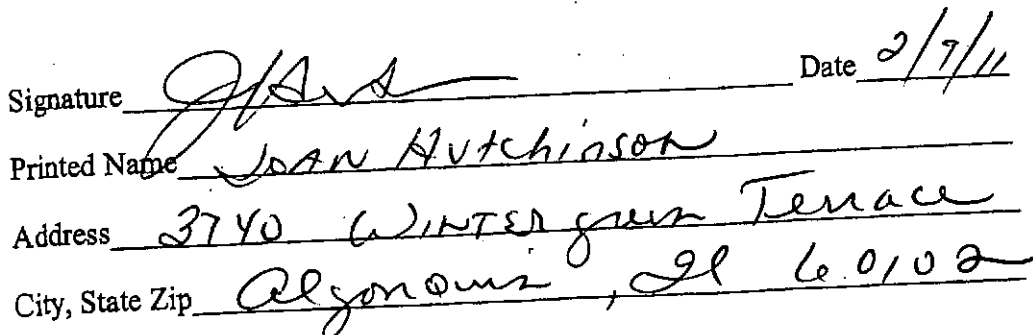 Signature Date 2/7/11
Printed Name Joan Hutchinson
Address 3740 Wintergreen Terrace
City, State Zip Algonquin, Il 60102